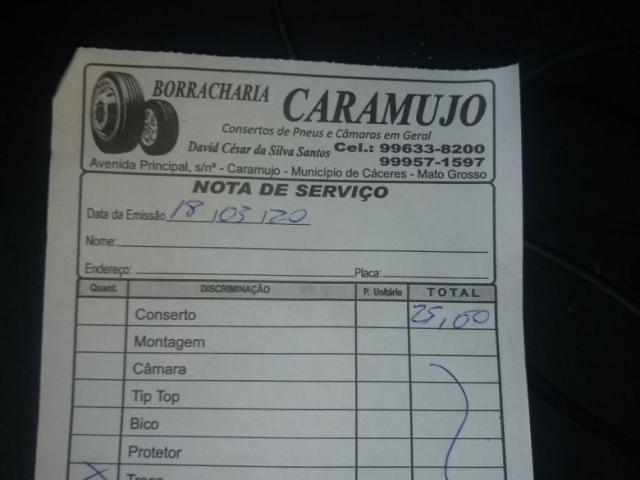 BORRACHARIA CARAMUJO
Consertos de Pneus e Câmaras em Geral
David César da Silva Santos Cel.: 99633-8200
99957-1597
Avenida Principal, s/nº - Caramujo - Município de Cáceres - Mato Grosso
NOTA DE SERVIÇO
Data da Emissão 18/03/20
Nome:
Endereço: Placa:
Quant. DISCRIMINAÇÃO P. Unitário TOTAL
Conserto 25,00
Montagem
Câmara
Tip Top
Bico
Protetor
X